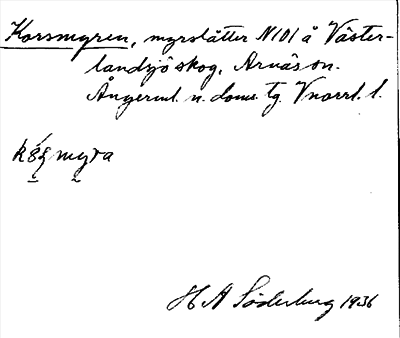 Korsmyren, myrslåtter N101 å Väster-
landsjö skog, Arnäs sn.
Ångerml. n. doms. tg. Vnorrl. l.
myra
H A Söderburg 1936